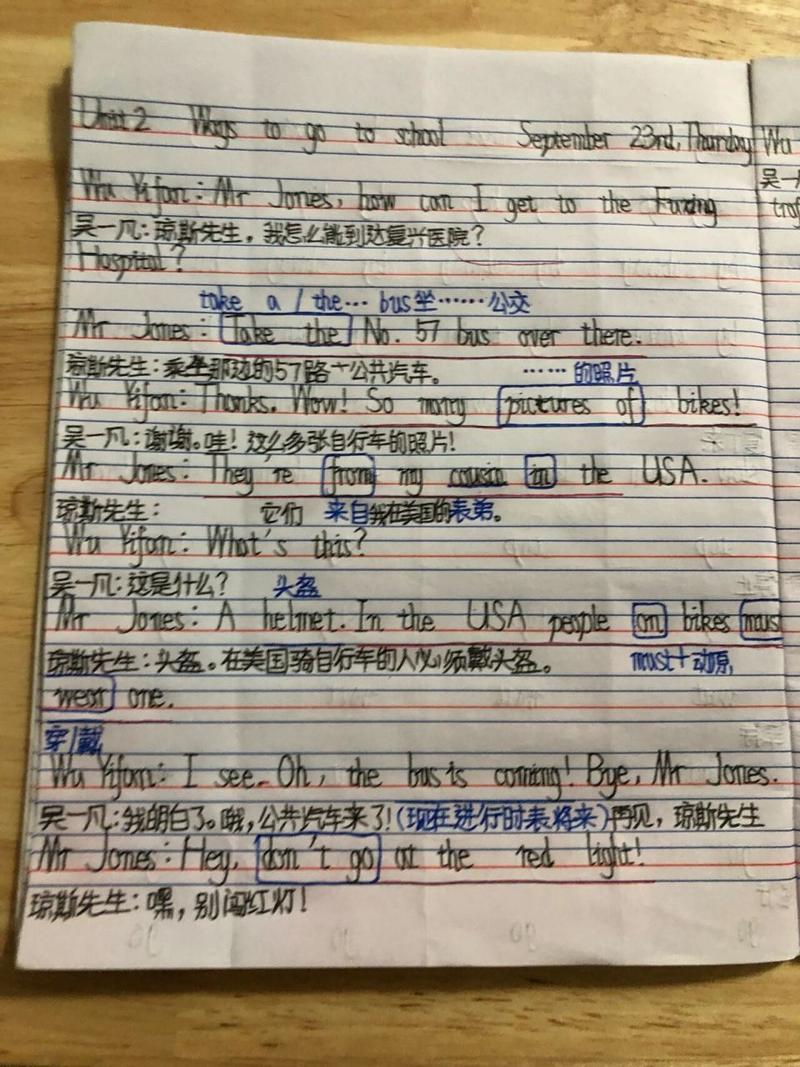 Unit 2 Ways to go to school September 23rd, Thursday
Wu Yifan: Mr Jones, how can I get to the Fuxing
吴一凡:琼斯先生,我怎么能到达复兴医院?
Hospital?
take a / the… bus坐……公交
Mr Jones: Take the No. 57 bus over there.
琼斯先生:乘坐那边的57路个公共汽车。
……的照片
Wu Yifan: Thanks. Wow! So many pictures of bikes!
吴一凡:谢谢。哇!这么多张自行车的照片!
Mr Jones: They're from my cousin in the USA.
琼斯先生: 它们 来自我在美国的表弟。
Wu Yifan: What's this?
吴一凡:这是什么? 头盔
Mr Jones: A helmet. In the USA people on bikes must
琼斯先生:头盔。在美国骑自行车的人必须戴头盔。 must+动原,
wear one.
穿/戴
Wu Yifan: I see. Oh, the bus is coming! Bye, Mr Jones.
吴一凡:我明白了。哦,公共汽车来了!(现在进行时表将来)再见,琼斯先生
Mr Jones: Hey, don't go at the red light!
琼斯先生:嘿,别闯红灯!
Wu
吴一